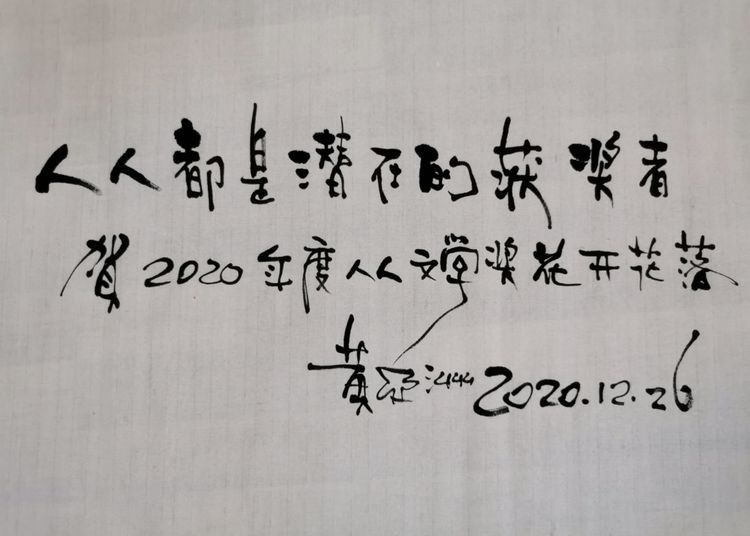 人人都是潜在的获奖者
贺2020年度人人文学奖花开花落
黄亚洲2020.12.26